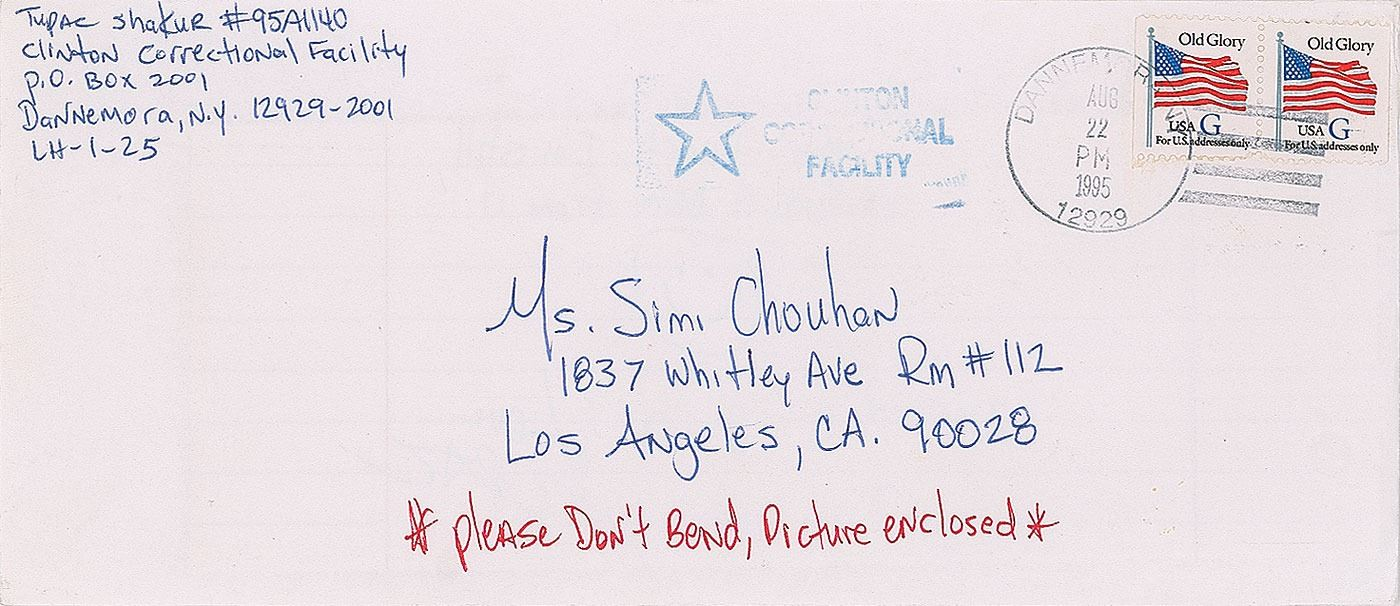 Tupac Shakur #95A1140
Clinton Correctional Facility
P.O. Box 2001
Dannemora, N.Y. 12929-2001
LH-1-25
CLINTON
CORRECTIONAL
FACILITY
DANNEMORA, NY
AUG
22
PM
1995
12929
Old Glory
USA G
For U.S. addresses only
Old Glory
USA G
For U.S. addresses only
Ms. Simi Chouhan
1837 Whitley Ave Rm #112
Los Angeles, CA. 90028
* please Don't Bend, Picture enclosed *